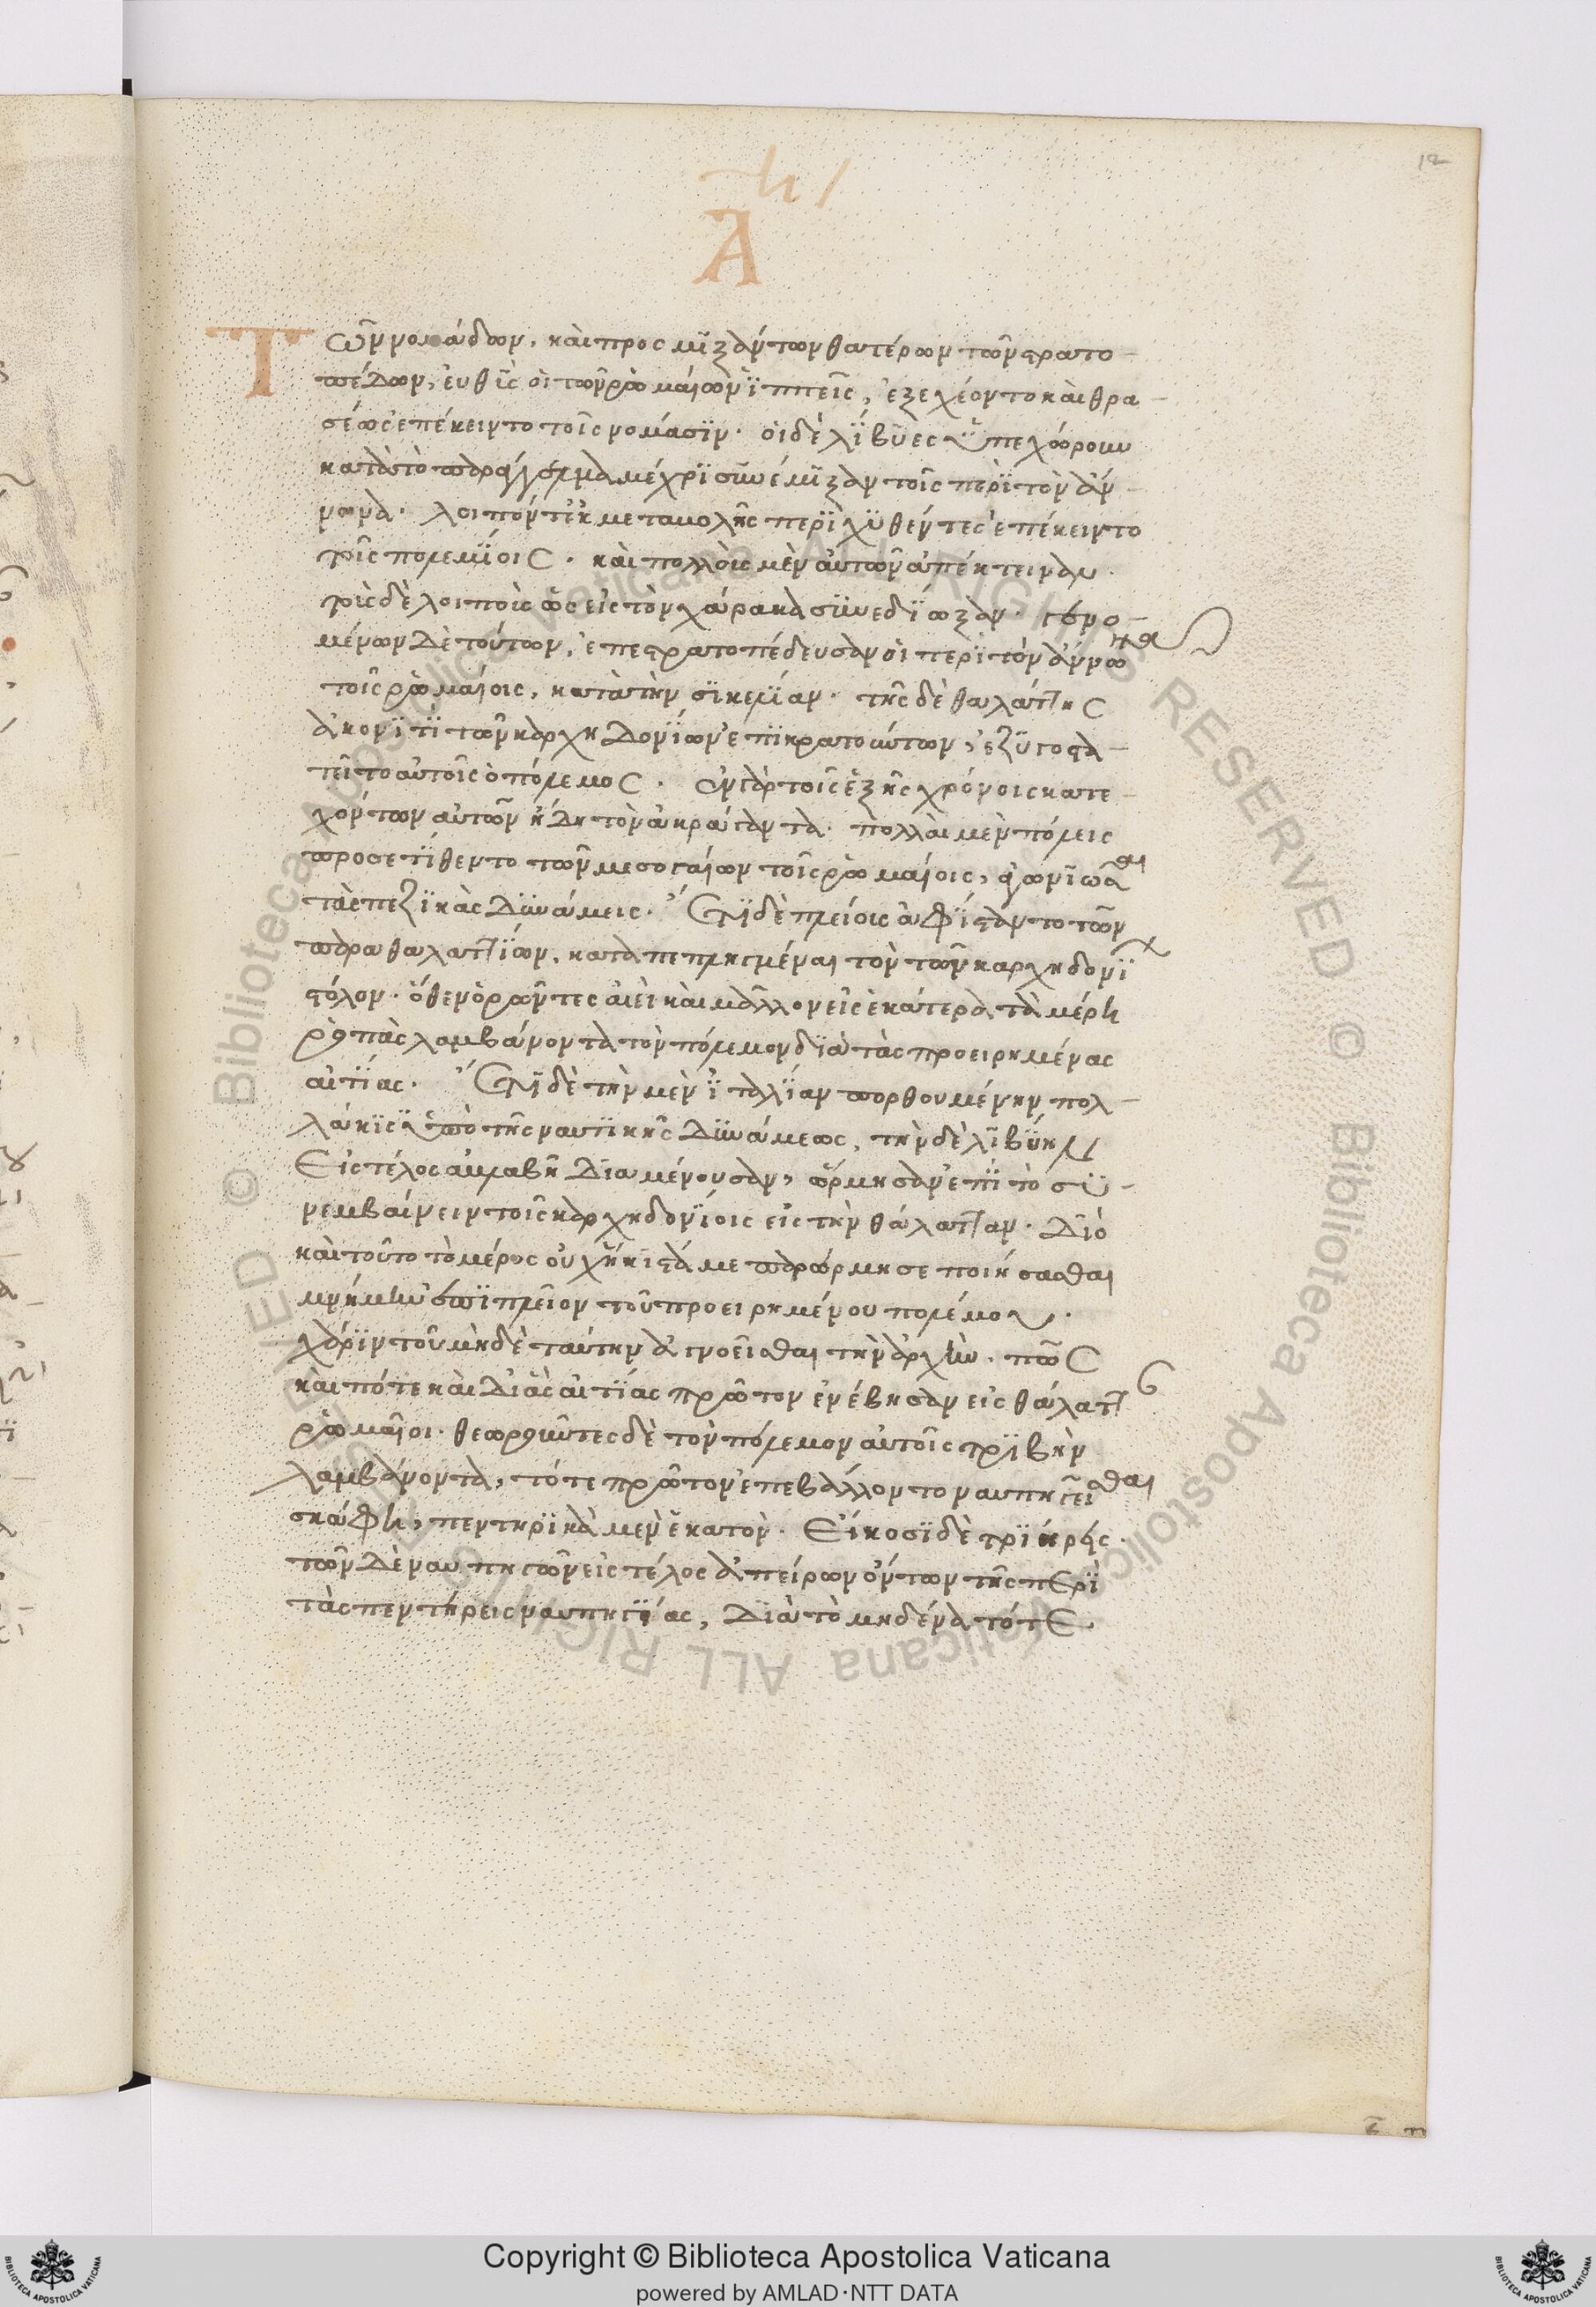 12
Α
Τῶν νομάδων, καὶ προσμιξάντων θατέρων τῶν στρατο-
πέδων, εὐθὺς οἱ τῶν ῥωμαίων ϊππεῖς, ἐξεχέοντο καὶ θρα-
σέως ἐπέκειντο τοῖς νομάσϊν· οἱ δὲ λίβϋες ὑπεχώρουν
κατὰ τὸ παράγγελμα μέχρϊ συνέμϊξαν τοῖς περὶ τὸν ἄν-
νωνα· λοιπόν τ' ἐκ μεταμολῆς περϊχϋθέντες ἐπέκειντο
τοῖς πολεμΐοις· καὶ πολλοὺς μὲν αὐτῶν ἀπέκτειναν·
τοὺς δὲ λοιποὺς ἕως εἰς τὸν χάρακα σϋνεδΐωξαν· γενο-
μένων δὲ τούτων, ἐπεστρατοπέδευσαν οἱ περὶ τὸν ἄννωνα
τοῖς ῥωμαίοις, κατὰ τὴν σϊκελΐαν· τῆς δὲ θαλάττης
ἀκονϊτὶ τῶν καρχηδονΐων ἐπϊκρατούντων, ἐζϋγοστα-
τεῖτο αὐτοῖς ὁ πόλεμος· ἐν γὰρ τοῖς ἑξῆς χρόνοις κατε-
χόντων αὐτῶν ἤδη τὸν ἀκράγαντα· πολλαὶ μὲν πόλεις
προσετΐθεντο τῶν μεσογαίων τοῖς ῥωμαίοις, ἀγωνϊῶσαι
τὰς πεζϊκὰς δϋνάμεις· Ἔτϊ δὲ πλείους ἀφΐσταντο τῶν
παραθαλαττΐων, καταπεπληγμέναι τὸν τῶν καρχηδονΐων
στόλον· ὅθεν ὁρῶντες αἰεὶ καὶ μᾶλλον εἰς ἑκάτερα τὰ μέρη
ῥοπὰς λαμβάνοντα τὸν πόλεμον δϊὰ τὰς προειρημένας
αἰτΐας· Ἔτϊ δὲ τὴν μὲν ϊταλΐαν πορθουμένην πολ-
λάκϊς ὑπὸ τῆς ναυτϊκῆς δϋνάμεως, τὴν δὲ λϊβύην
Εἰς τέλος ἀβλαβῆ δϊαμένουσαν, ὥρμησαν ἐπὶ τὸ σϋ-
νεμβαίνειν τοῖς καρχηδονΐοις εἰς τὴν θάλατταν· Διὸ
καὶ τοῦτο τὸ μέρος οὐχ ἥκιστά με παρώρμησε ποιήσασθαι
μνήμην ἐπὶ πλεῖον τοῦ προειρημένου πολέμου·
χάρϊν τοῦ μηδὲ ταύτην ἀγνοεῖσθαι τὴν ἀρχὴν· πῶς
καὶ πότε καὶ δι' ἃς αἰτΐας πρῶτον ἐνέβησαν εἰς θάλατταν
ῥωμαῖοι· θεωροῦντες δὲ τὸν πόλεμον αὐτοῖς τρϊβὴν
λαμβάνοντα, τότε πρῶτον ἐπεβάλλοντο ναυπηγεῖσθαι
σκάφη, πεντηρϊκὰ μὲν ἑκατὸν· Εἴκοσϊ δὲ τρϊήρεις·
τῶν δὲ ναυπηγῶν εἰς τέλος ἀπείρων ὄντων τῆς περὶ
τὰς πεντήρεις ναυπηγΐας, Δϊὰ τὸ μηδένα τότε
Copyright © Biblioteca Apostolica Vaticana
powered by AMLAD·NTT DATA